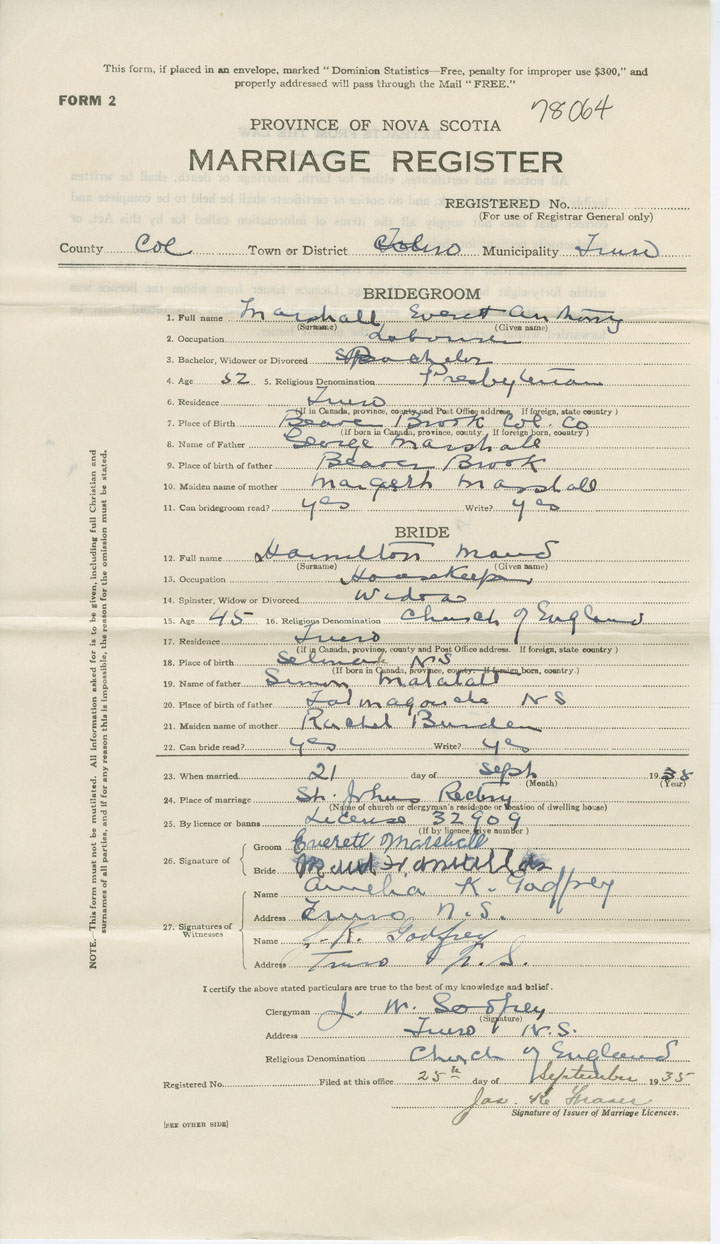 This form, if placed in an envelope, marked "Dominion Statistics—Free, penalty for improper use $300," and
properly addressed will pass through the Mail "FREE."
FORM 2
78064
PROVINCE OF NOVA SCOTIA
MARRIAGE REGISTER
REGISTERED No.
(For use of Registrar General only)
County Col Town or District Municipality Truro
BRIDEGROOM
1. Full name Marshall Everett Anthony
(Surname) (Given name)
2. Occupation Labourer
3. Bachelor, Widower or Divorced Bachelor
4. Age 52 5. Religious Denomination Presbyterian
6. Residence Truro
(If in Canada, province, county and Post Office address. If foreign, state country)
7. Place of Birth Beaver Brook Col. Co
(If born in Canada, province, county. If foreign born, country)
8. Name of Father George Marshall
9. Place of birth of father Beaver Brook
10. Maiden name of mother Margeth Marshall
11. Can bridegroom read? yes Write? yes
BRIDE
12. Full name Hamilton Maud
(Surname) (Given name)
13. Occupation Housekeeper
14. Spinster, Widow or Divorced Widow
15. Age 45 16. Religious Denomination Church of England
17. Residence Truro
(If in Canada, province, county and Post Office address. If foreign, state country)
18. Place of birth Selmah N.S
(If born in Canada, province, county. If foreign born, country.)
19. Name of father Simon Matatall
20. Place of birth of father Tatmagouche N S
21. Maiden name of mother Rachel Burden
22. Can bride read? yes Write? yes
23. When married 21 day of Sept 1935
(Month) (Year)
24. Place of marriage St. Johns Rectory
(Name of church or clergyman's residence or location of dwelling house)
25. By licence or banns License 32909
(If by licence, give number)
26. Signature of
Groom Everett Marshall
Bride Maud
27. Signatures of
Witnesses
Name Amelia K. Godfrey
Address Truro N.S.
Name K. Godfrey
Address Truro N.S.
I certify the above stated particulars are true to the best of my knowledge and belief.
Clergyman J. W. Godfrey
(Signature)
Address Truro N.S.
Religious Denomination Church of England
Registered No. Filed at this office 25th day of September 1935
Jas. K. Fraser
Signature of Issuer of Marriage Licences.
[SEE OTHER SIDE]
NOTE.—This form must not be mutilated. All information asked for is to be given, including full Christian and
surnames of all parties, and if for any reason this is impossible, the reason for the omission must be stated.